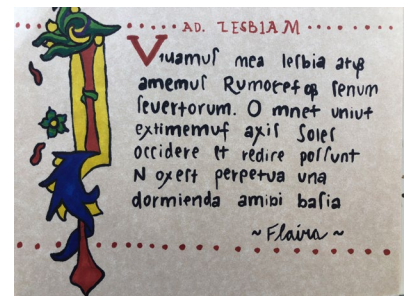 AD. LESBIAM
Viuamuſ mea leſbia atqꝫ
amemuſ Rumoreſ qꝫ ſenum
ſeuertorum. O mnet uniut
extimemuſ axiſ Soleſ
occidere et redire poſſunt
N oxeſt perpetua una
dormienda amibi baſia
~ Flaira ~